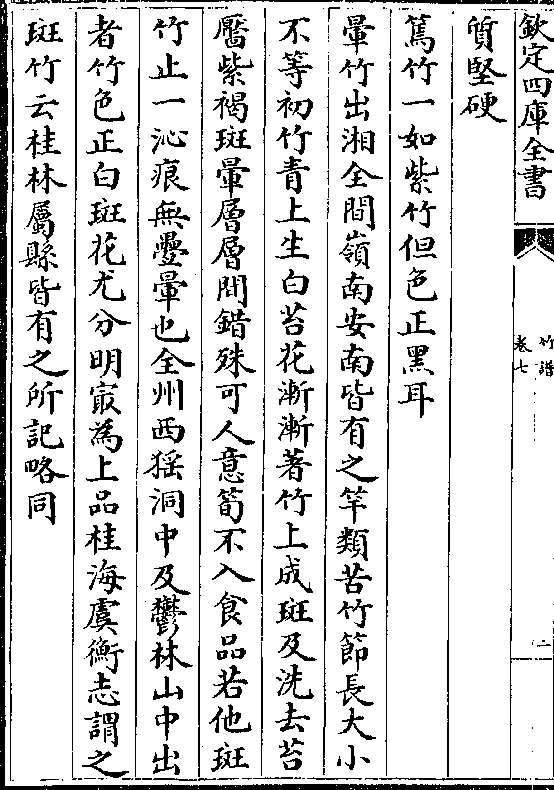 欽定四庫全書
竹譜
卷七
二
質堅硬
篤竹一如紫竹但色正黑耳
暈竹出湘全間嶺南安南皆有之竿類苦竹節長大小
不等初竹青上生白苔花漸漸著竹上成斑及洗去苔
靨紫褐斑暈層層間錯殊可人意筍不入食品若他斑
竹止一沁痕無疊暈也全州西猺洞中及鬱林山中出
者竹色正白斑花尤分明㝡為上品桂海虞衡志謂之
斑竹云桂林屬縣皆有之所記略同